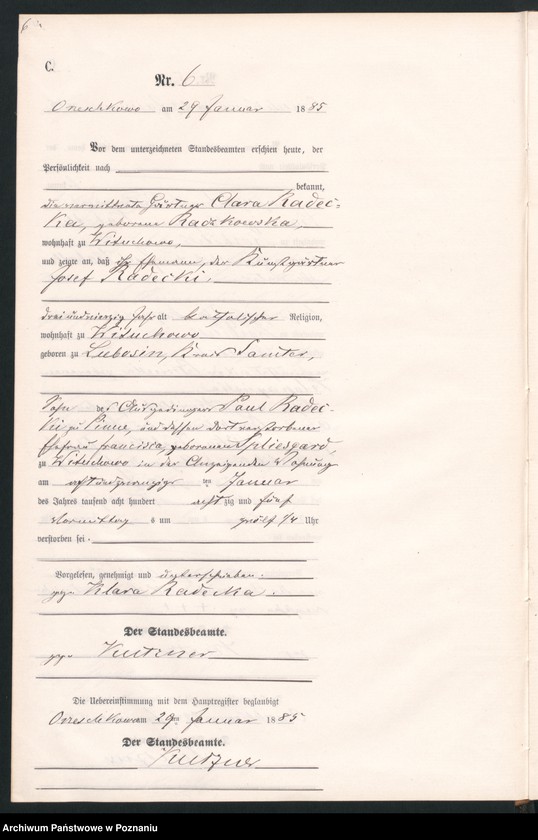 6
C.
Nr. 6
Oreschkowo am 29 Januar 1885
Vor dem unterzeichneten Standesbeamten erschien heute, der
Persönlichkeit nach
bekannt,
die verwittwete Gärtner Clara Radec=
ka, geborene Radzkowska,
wohnhaft zu Wituchowo,
und zeigte an, daß ihr Ehemann, der Kunstgärtner
Josef Radecki,
dreiundvierzig Jahr alt katholischer Religion,
wohnhaft zu Wituchowo
geboren zu Lubosin, Kreis Samter,
Sohn des Ausgedingers Paul Radec-
ki zu Pinne, und dessen dort verstorbener
Ehefrau Francisca, geborenen Spliesgard,
zu Wituchowo in der Anzeigenden Wohnung
am achtundzwanzigsten Januar
des Jahres tausend acht hundert achtzig und fünf
Vormittags um zwölf 1/4 Uhr
verstorben sei.
Vorgelesen, genehmigt und unterschrieben.
gez. Klara Radecka.
Der Standesbeamte.
gez. Kutzner
Die Uebereinstimmung mit dem Hauptregister beglaubigt
Oreschkowo am 29ten Januar 1885
Der Standesbeamte.
Kutzner
Archiwum Państwowe w Poznaniu